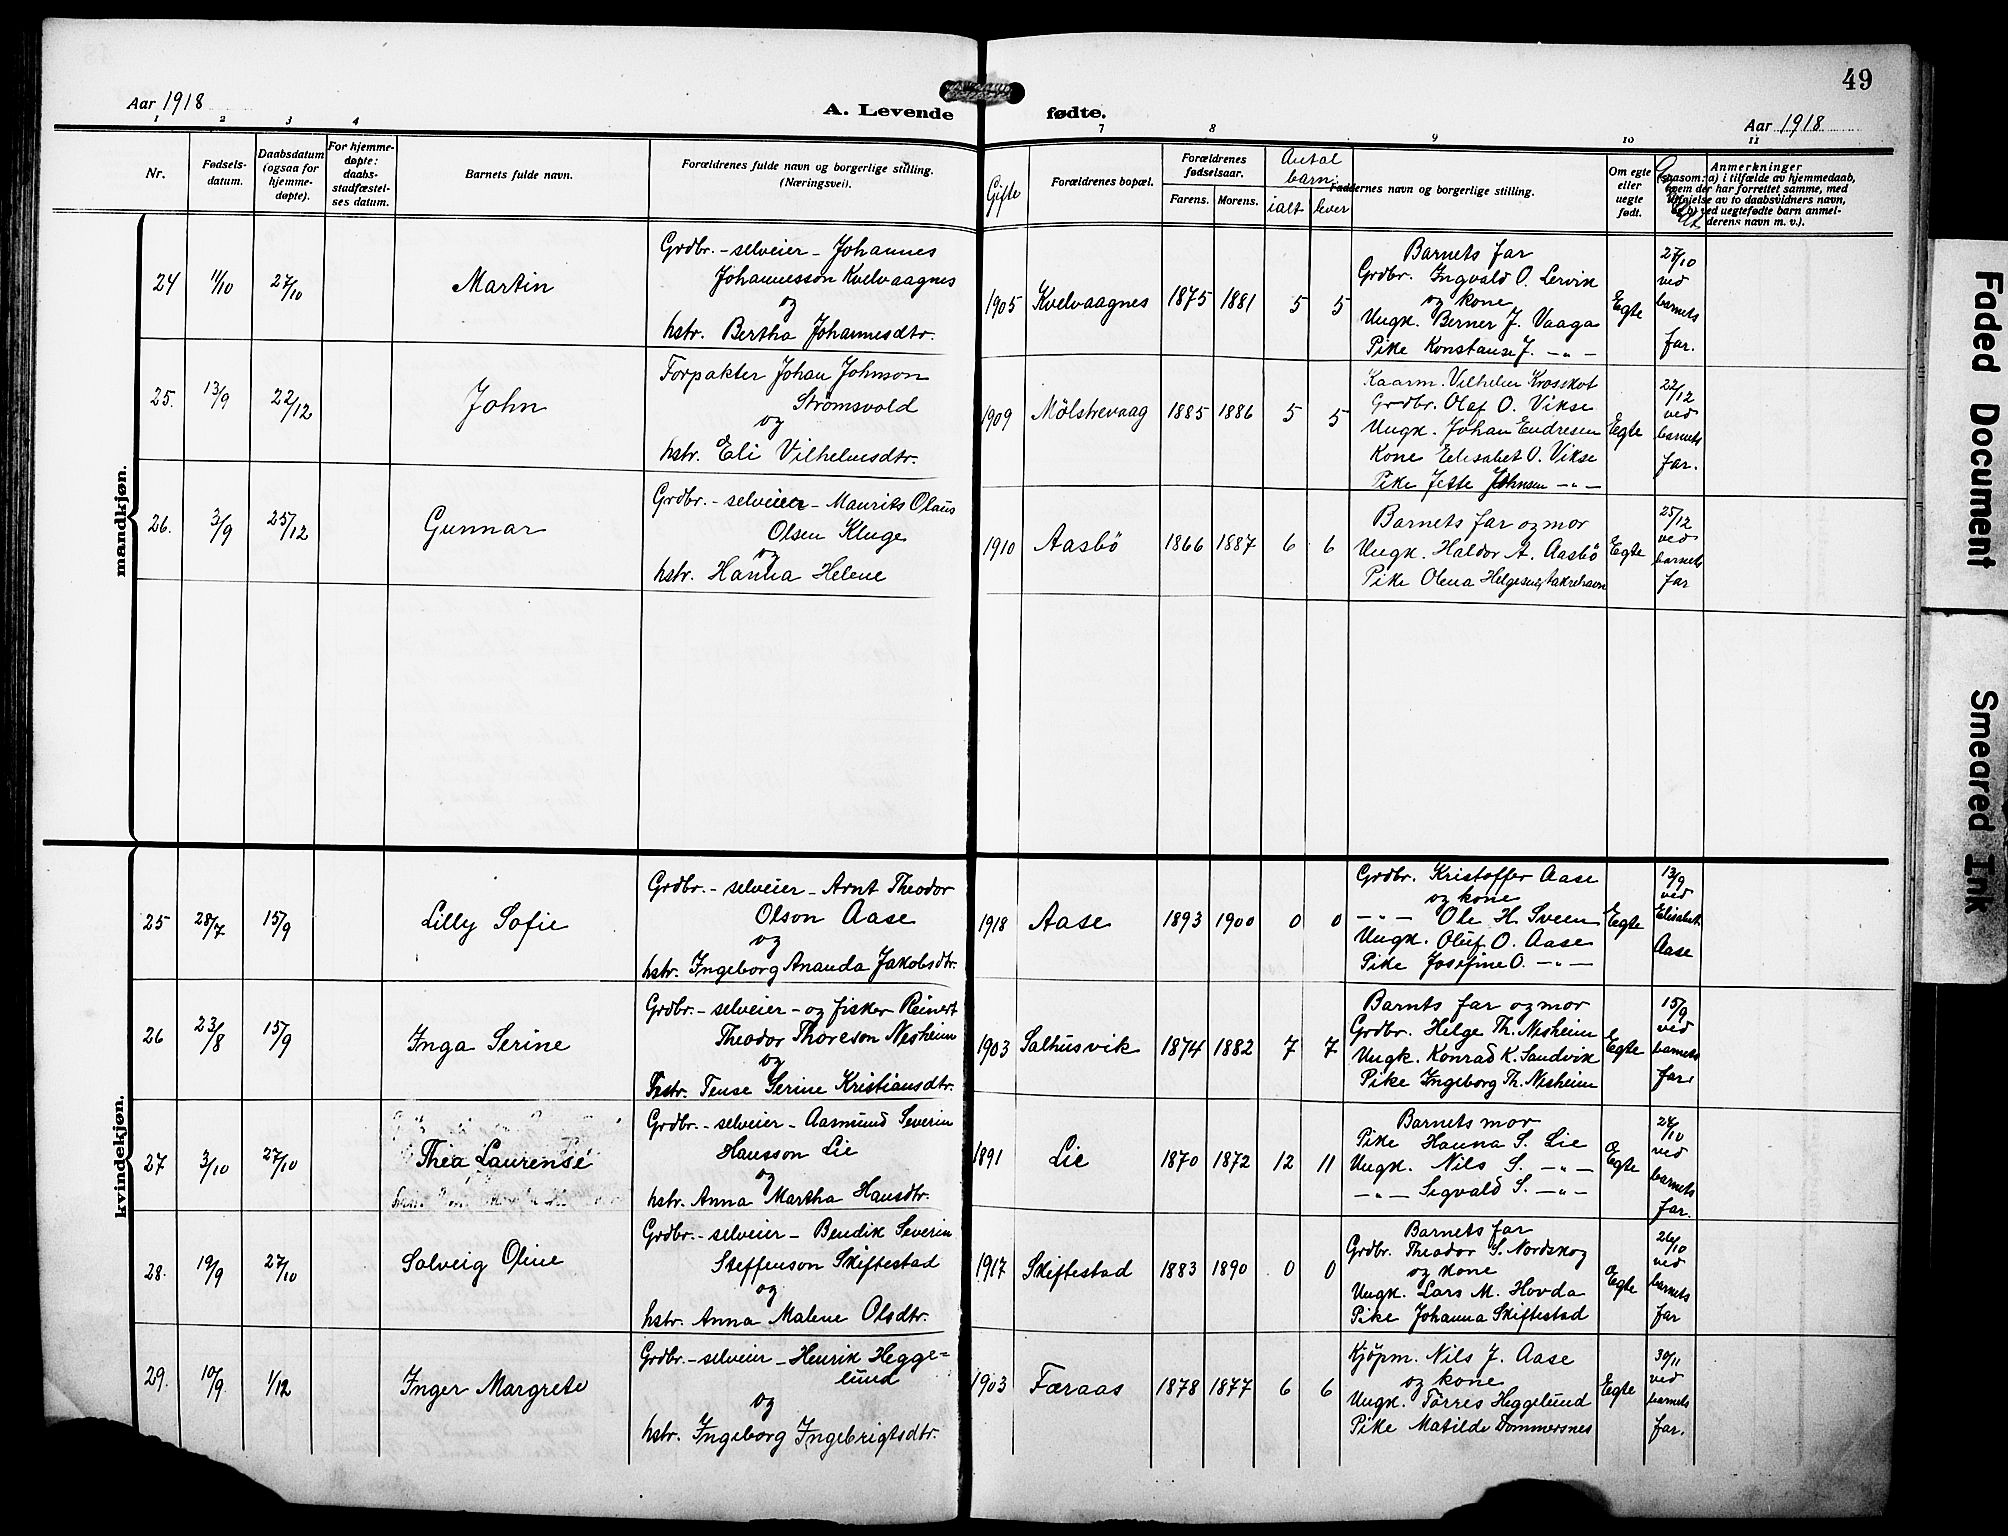 49
Aar 1918
A. Levende fødte.
Aar 1918
1 2 3 4 7 8 9 10 11
Nr.
Fødsels-
datum.
Daabsdatum
(ogsaa for
hjemme-
døpte).
For hjemme-
døpte:
daabs-
stadfæstel-
ses datum.
Barnets fulde navn.
Forældrenes fulde navn og borgerlige stilling.
(Næringsvei).
Gifte
Forældrenes bopæl.
Forældrenes
fødselsaar.
Farens. Morens.
Antal
barn:
ialt lever
Faddernes navn og borgerlige stilling.
Om egte
eller
uegte
født.
Anmerkninger
(saasom: a) i tilfælde av hjemmedaab,
hvem der har forrettet samme, med
tilføielse av to daabsvidners navn,
b) ved uegtefødte barn anmel-
derens navn m. v.).
mandkjøn.
24
11/10
27/10
Martin
Grdbr. - selveier - Johannes
Johannesson Kvelvaagnes
og
hstr. Bertha Johannesdtr.
1905
Kvelvaagnes
1875
1881
5
5
Barnets far
Grdbr. Ingvald O. Lervik
og kone
Ungk. Berner J. Vaaga
Pike Konstanse J. -„-
Egte
27/10
ved
barnets
far.
25.
13/9
22/12
John
Forpakter Johan Johnson
Strømsvold
og
hstr. Eli Vilhelmsdtr.
1909
Mölstrevaag
1885
1886
5
5
Kaarm. Vilhelm Krosskot
Grdbr. Olaf O. Vikse
Ungk. Johan Endresen
Kone Elisabet O. Vikse
Pike Jette Johnsen -„-
Egte
22/12
ved
barnets
far.
26.
3/9
25/12
Gunnar
Grdbr. - selveier - Maurits Olaus
Olsen Kluge
og
hstr. Hanna Helene
1910
Aasbö
1866
1887
6
6
Barnets far og mor
Ungk. Haldor A. Aasbö
Pike Olena Helgesen, Aakrehavn
Egte
25/12
ved
barnets
far
kvindekjøn.
25
28/7
15/9
Lilly Sofie
Grdbr. - selveier - Arnt Theodor
Olson Aase
og
hstr. Ingeborg Ananda Jakobsdtr.
1918
Aase
1893
1900
0
0
Grdbr. Kristoffer Aase
og kone
-„- Ole H. Sveen
Ungk. Oluf O. Aase
Pike Josefine O. -„-
Egte
13/9
ved
Elisabet
Aase
26
23/8
15/9
Inga Serine
Grdbr. - selveier - og fisker Reinert
Theodor Thoreson Nesheim
og
hstr. Tense Serine Kristiansdtr.
1903
Salhusvik
1874
1882
7
7
Barnts far og mor
Grdbr. Helge Th. Nesheim
Ungk. Konrad K. Sandvik
Pike Ingeborg Th. Nesheim
Egte
15/9
ved
barnets
far.
27
3/10
27/10
Thea Laurense
Grdbr. - selveier - Aasmund Severin
Hansson Lie
og
hstr. Anna Martha Hansdtr.
1891
Lie
1870
1872
12
11
Barnets mor
Pike Hanna S. Lie
Ungk. Nils S. -„-
-„- Sigvald S. -„-
Egte
26/10
ved
barnets
far.
28.
19/9
27/10
Solveig Oline
Grdbr. - selveier - Bendik Severin
Steffenson Skiftestad
og
hstr. Anna Malene Olsdtr.
1917
Skiftestad
1883
1890
0
0
Barnets far
Grdbr. Theodor S. Nordskog
og kone
Ungk. Lars M. Hovda
Pike Johanna Skiftestad
Egte
26/10
ved
barnets
far
29.
10/9
1/12
Inger Margrete
Grdbr. - selveier - Henrik Hegge=
lund
og
hstr. Ingeborg Ingebrigtsdtr.
1903
Færaas
1878
1877
6
6
Kjöpm. Nils J. Aase
og kone
Ungk. Torres Heggelund
Pike Matilde Dommersnes
Egte
30/11
ved
barnets
far.
Faded Document
Smeared Ink